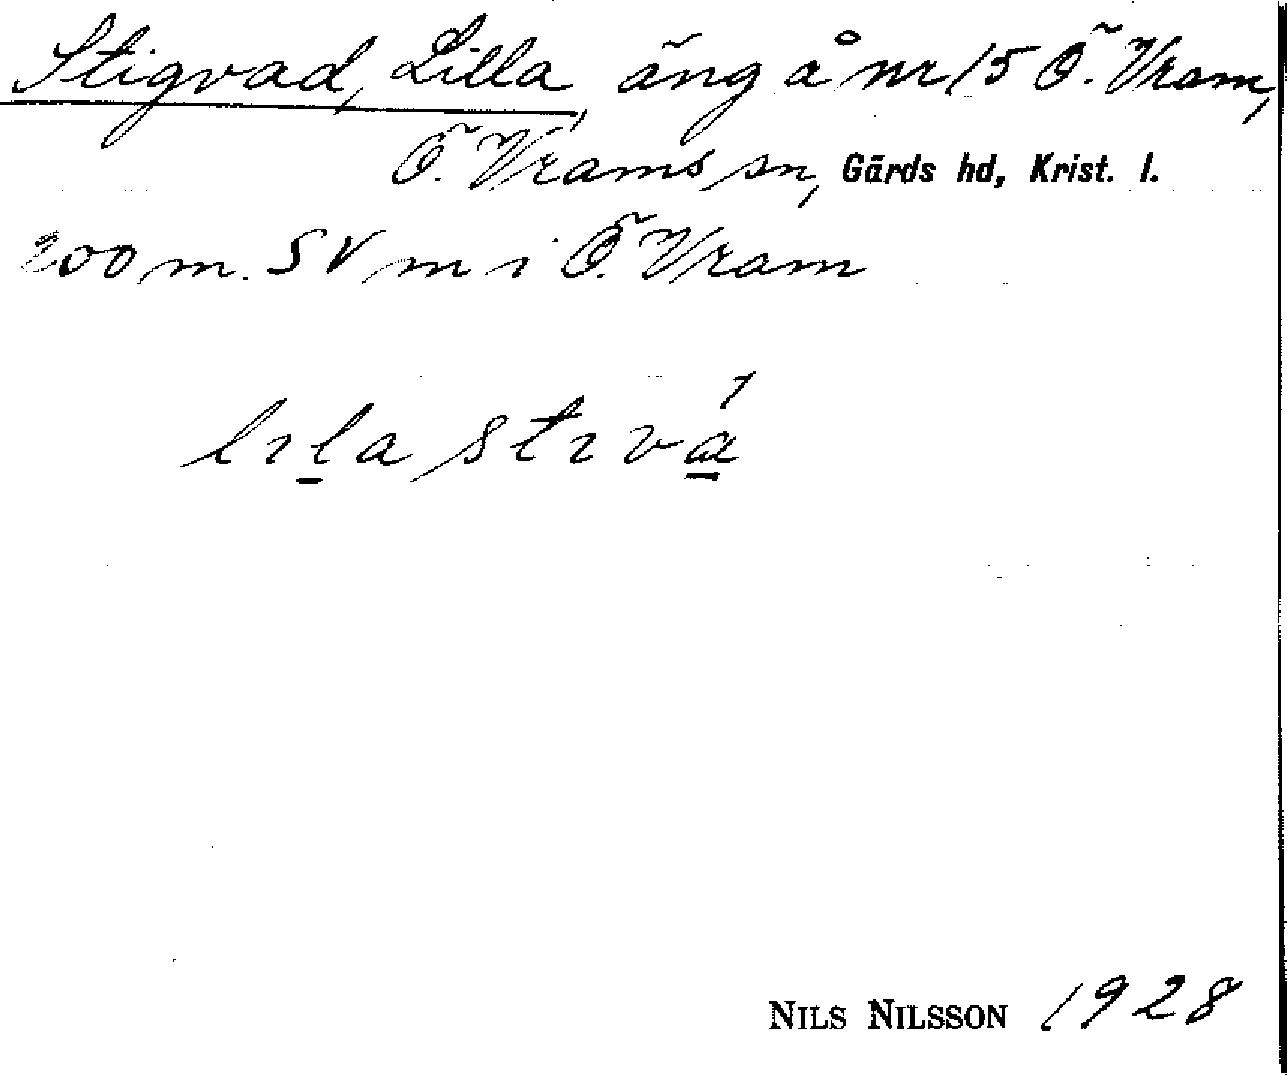 Stigvad, Lilla, äng å nr 15 Ö. Vram,
Ö. Vrams sn, Gärds hd, Krist. l.
200 m. SV m i Ö. Vram
lıl̲a stıvá̲
NILS NILSSON 1928